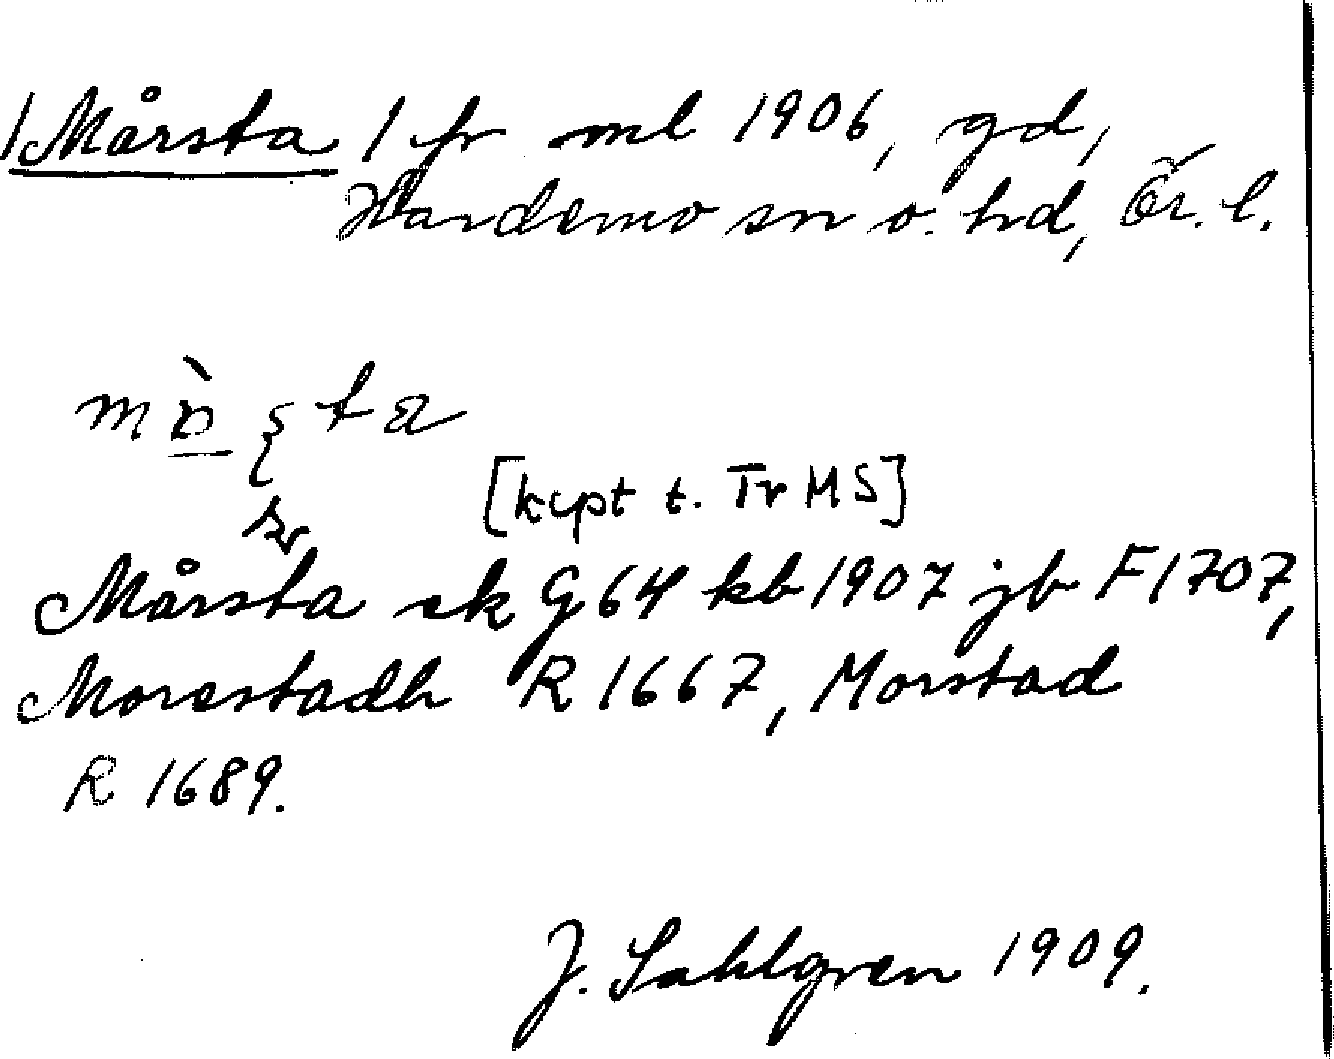 /Mårsta / fr ml 1906, gd,
Hardemo sn o. hd, Ör. l.
[kypt t. Tr MS]
Mårsta ek G 64 kb 1907 jb F 1707,
Morastadh R 1667, Morstad
R 1689.
J. Sahlgren 1909.